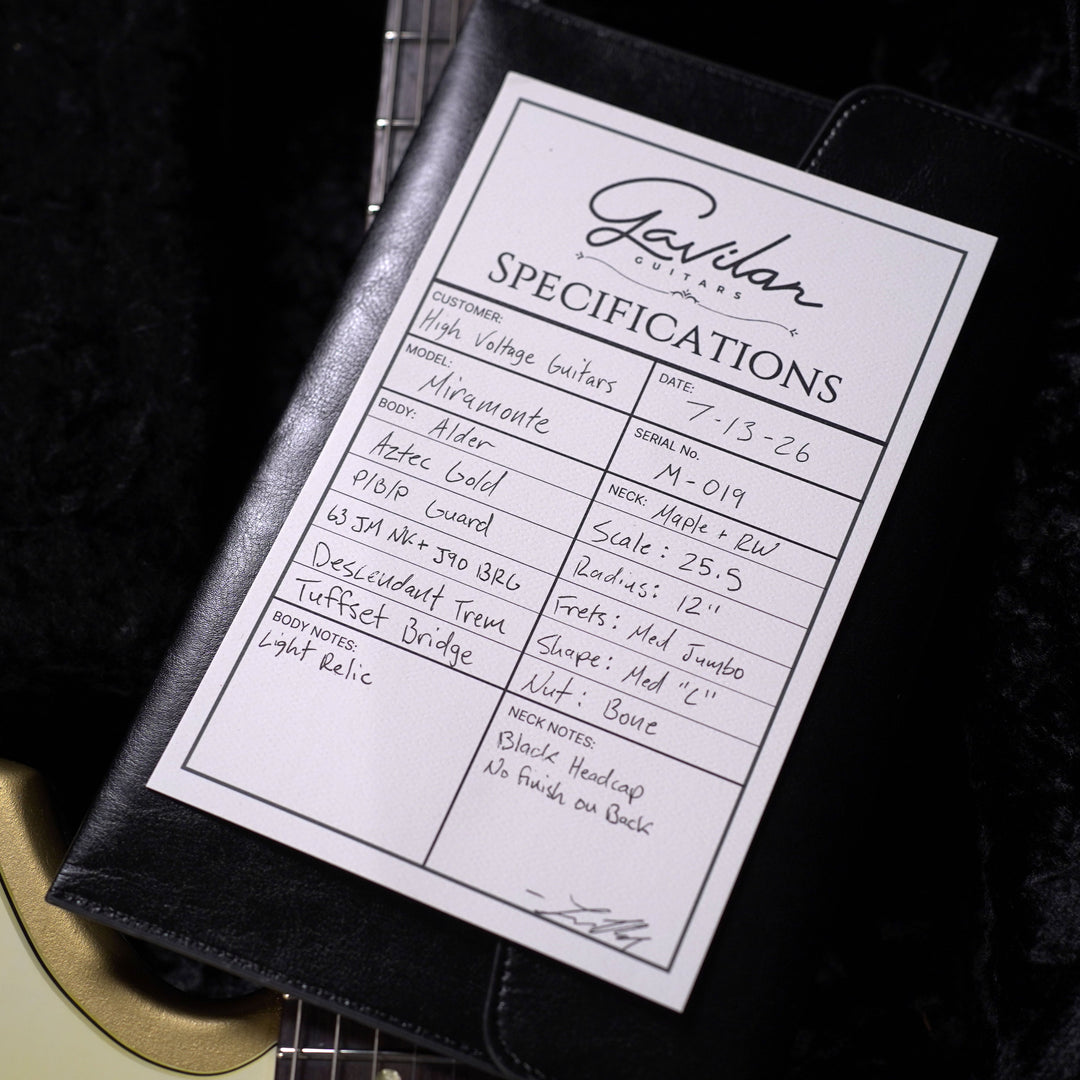 Gavilan
GUITARS
SPECIFICATIONS
CUSTOMER:
High Voltage Guitars
DATE:
7-13-26
MODEL:
Miramonte
SERIAL No.
M-019
BODY: Alder
Aztec Gold
P/B/P Guard
63 JM NK + J90 BRG
Descendant Trem
Tuffset Bridge
NECK: Maple + RW
Scale: 25.5
Radius: 12"
Frets: Med Jumbo
Shape: Med "C"
Nut: Bone
BODY NOTES:
Light Relic
NECK NOTES:
Black Headcap
No finish on Back